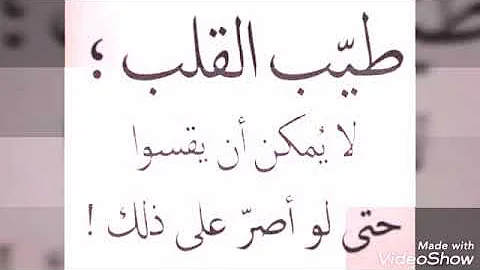 طيّب القلب ؛
لا يُمكن أن يقسوا
حتى لو أصرّ على ذلك !
Made with
VideoShow